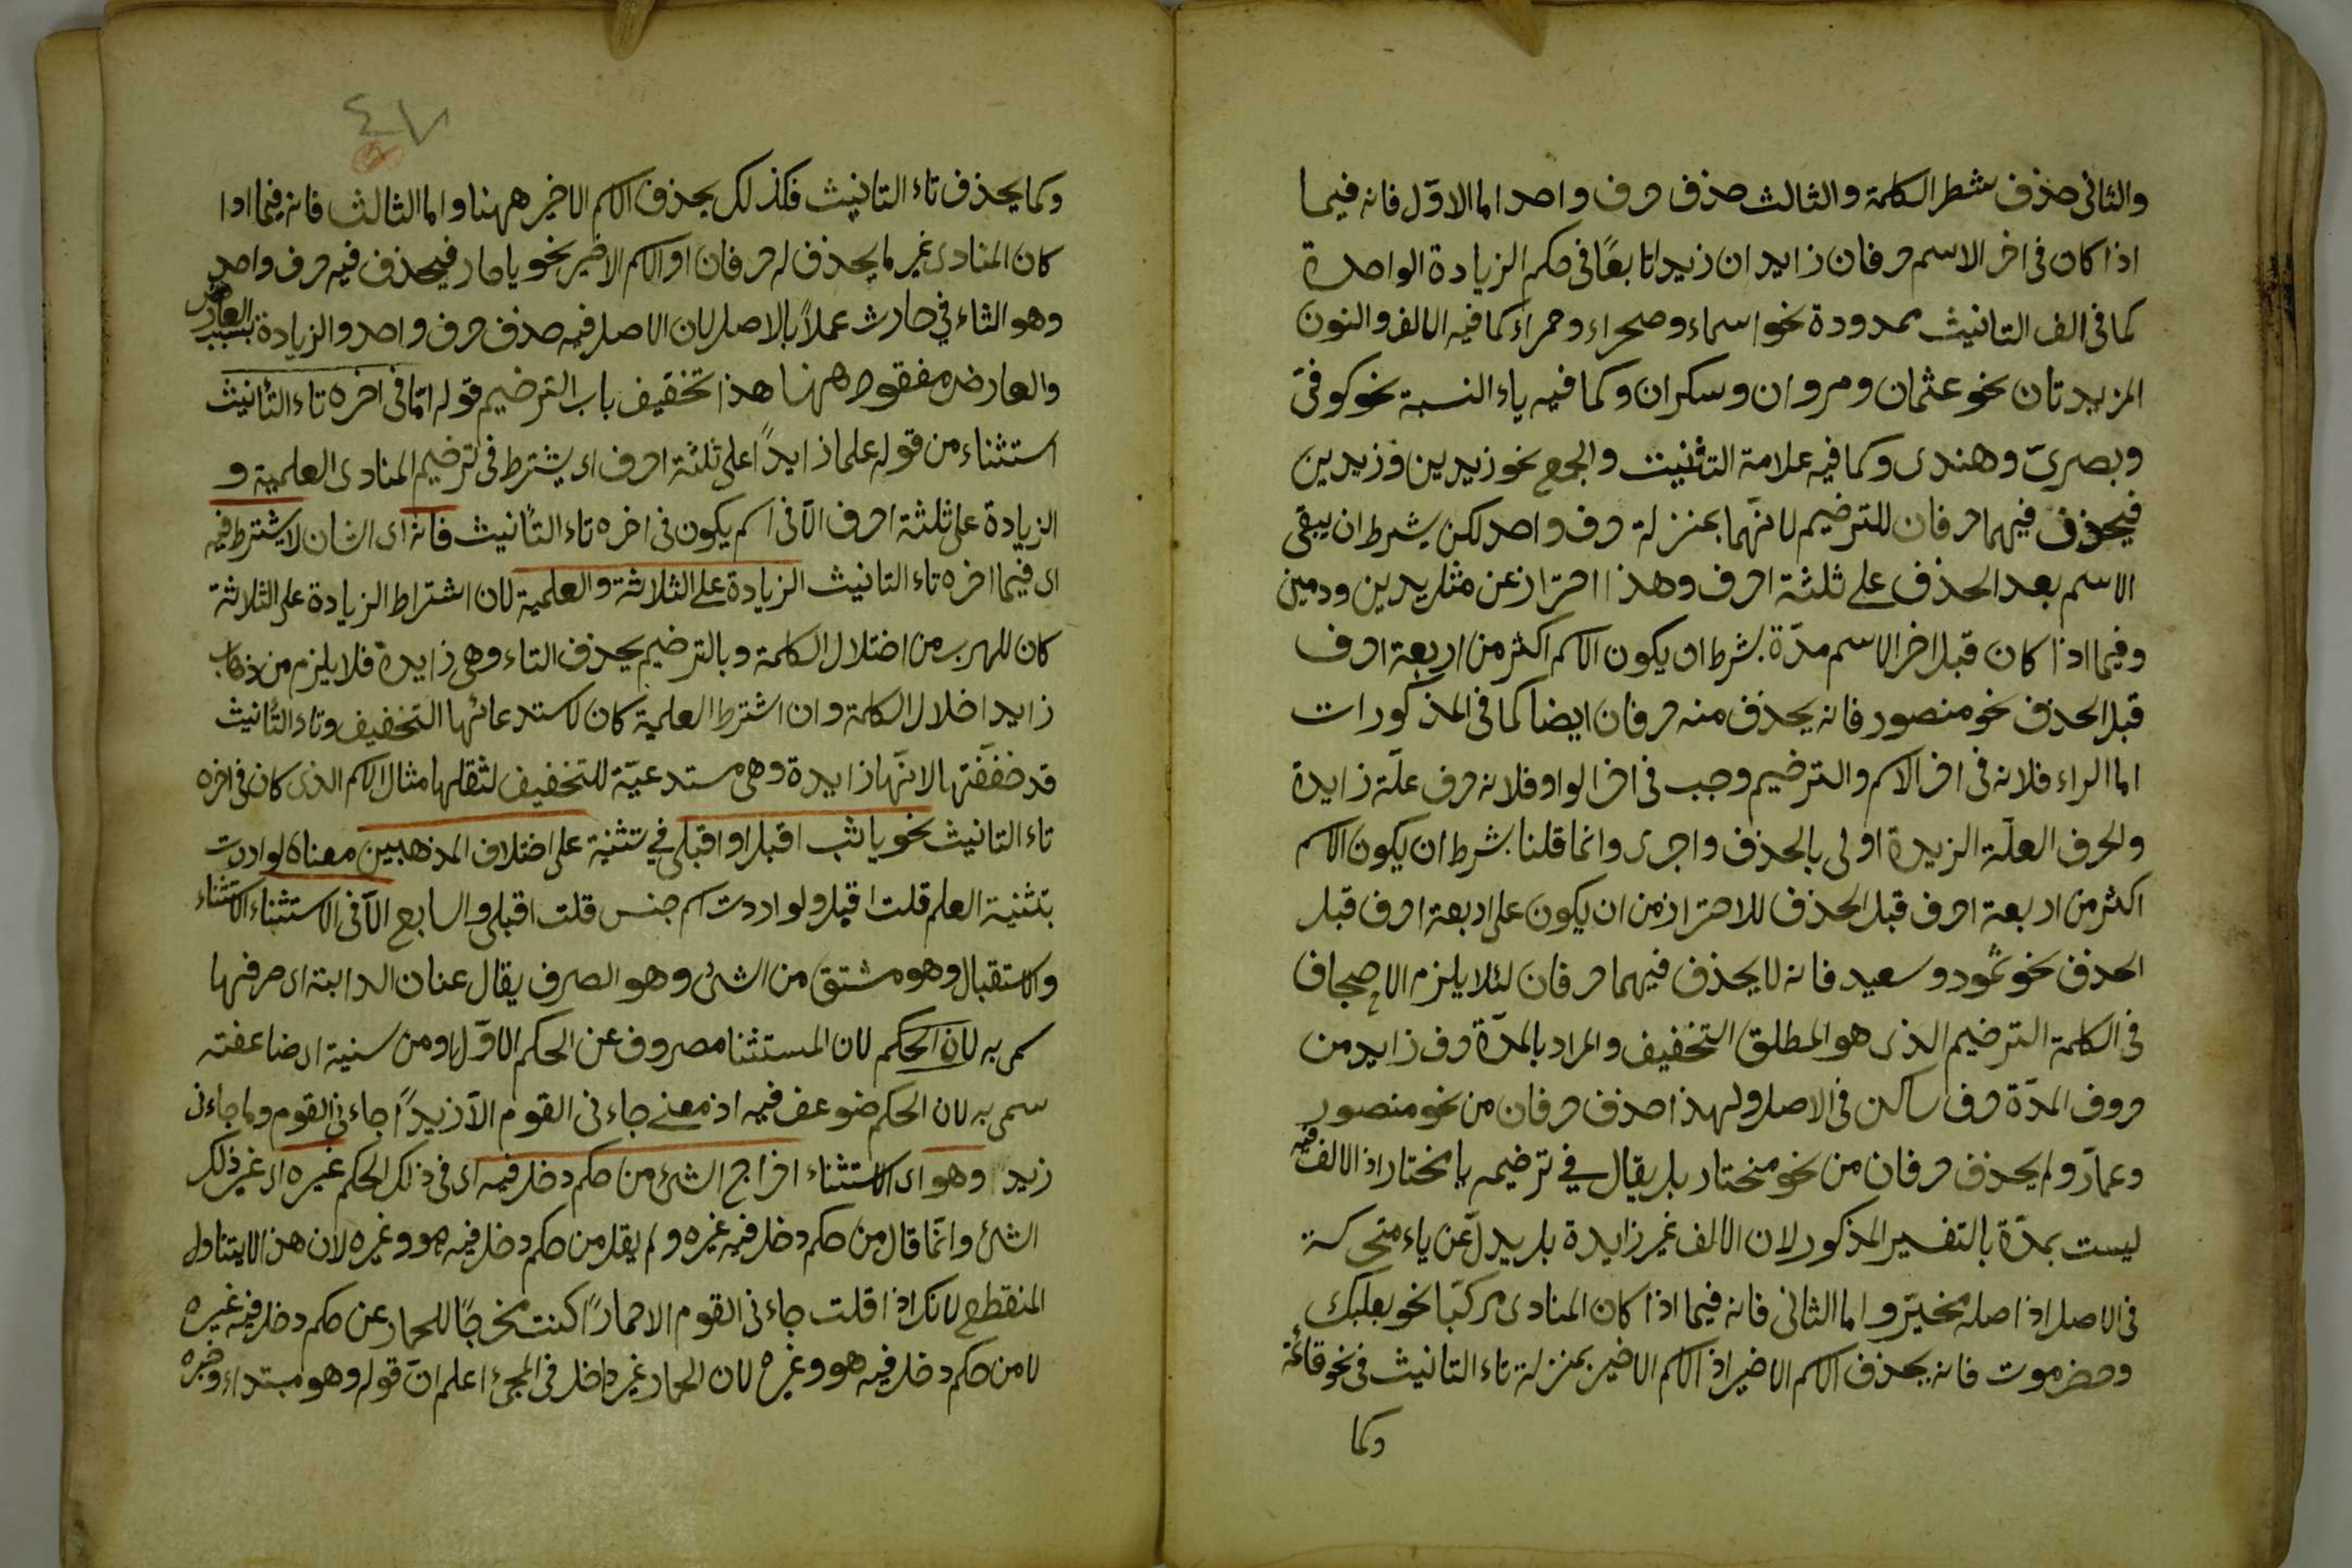 والثانى حذف شطر الكلمة والثالث حذف حرف واحد اما الاوّل فانه فيما
اذا كان فى اخر الاسم حرفان زايدان زيدا تابعًا فى حكم الزيادة الواحدة
كما فى الف التانيث ممدودة نحو اسماء وصحراء وحمراء كما فيه الالف والنون
المزيدتان نحو عثمان ومروان وسكران وكما فيه ياء النسبة نحو كوفىّ
وبصرىّ وهندى وكما فيه علامة التثنية والجمع نحو زيدين وزيدين
فيحذف فيهما حرفان للترخيم لانّهما بمنزلة حرف واحد لكن بشرط ان يبقى
الاسم بعد الحذف على ثلثة احرف وهذا احتراز عن مثل يدين ودمين
وفيما اذا كان قبل اخر الاسم مدّة بشرط ان يكون الاسم اكثر من اربعة احرف
قبل الحذف نحو منصور فانه يحذف منه حرفان ايضا كما فى المذكورات
اما الراء فلانه فى اخر الاسم والترخيم وجب فى اخر الواو فلانه حرف علّة زايدة
والحرف العلّة الزيدة اولى بالحذف واجرى وانما قلنا بشرط ان يكون الاسم
اكثر من اربعة احرف قبل الحذف للاحتراز من ان يكون على اربعة احرف قبل
الحذف نحو ثمود وسعيد فانه لا يحذف فيهما حرفان لئلا يلزم الاجحاف
فى الكلمة الترخيم الذى هو المطلق التخفيف والمراد بالمدّة حرف زايد من
حروف المدّة حرف ساكن فى الاصل ولهذا حذف حرفان من نحو منصور
وعمار ولم يحذف حرفان من نحو مختار بل يقال فى ترخيمه يا مختا اذ الالف فيه
ليست بمدّة بالتفسير المذكور لان الالف غير زايدة بل بدل عن ياء متحركة
فى الاصل اذ اصله مختير واما الثانى فانه فيما اذا كان المنادى مركبًا نحو بعلبك
وحضرموت فانه يحذف الاسم الاخير اذ الاسم الاخير بمنزلة تاء التانيث فى نحو قائمة
وكما
٤٧
وكما يحذف تاء التانيث فكذلك يحذف الاسم الاخير ههنا واما الثالث فانه فيما اذا
كان المنادى غير ما يحذف له حرفان او الاسم الاخير نحو يا حار فيحذف فيه حرف واحد
وهو الثاء في حارث عملاً بالاصل لان الاصل فيه حذف حرف واحد والزيادة بسبب العارض
والعارض مفقود ههنا هذا تخفيف باب الترخيم قوله امّا فى اخره تاء التأنيث
استثناء من قوله علما زايدًا على ثلثة احرف اى يشترط فى ترخيم المنادى العلمية و
الزيادة على ثلثة احرف الّا فى اسم يكون فى اخره تاء التأنيث فانه اى الشان لا يشترط فيه
اى فيما اخره تاء التانيث الزيادة على الثلاثة والعلمية لان اشتراط الزيادة على الثلاثة
كان للهرب من اختلال الكلمة وبالترخيم يحذف التاء وهى زايدة فلا يلزم من ذهاب
زايد اخلال الكلمة وان اشترط العلمية كان لاستدعائها التخفيف وتاء التأنيث
قد خففتها لانّها زايدة وهى مستدعيّة للتخفيف لثقلها مثال الاسم الذى كان فى اخره
تاء التانيث نحو يا ثب اقبل او اقبلى في تثنية على اختلاف المذهبين معناه لو اردت
بتثنية العلم قلت اقبل ولو اردت اسم جنس قلت اقبلى والسابع الّا فى الاستثناء الاستثناء
والاستقبال وهو مشتق من الشئ وهو الصرف يقال عنان الدابة اى صرفها
سمى به لان الحكم لان المستثنا مصروف عن الحكم الاوّل او من سنية اى ضاعفته
سمى به لان الحكم ضوعف فيه اذ معنى جاءنى القوم الّا زيدًا جاءنى القوم وما جاءنى
زيد وهو اى الاستثناء اخراج الشئ من حكم دخل فيه اى فى ذلك الحكم غيره اى غير ذلك
الشئ وانّما قال من حكم دخل فيه غيره ولم يقل من حكم دخل فيه هو وغيره لان هذا لا يتناول
المنقطع لانك اذا قلت جاءنى القوم الا حمارًا كنت مخرجًا للحمار عن حكم دخل فيه غيره
لا من حكم دخل فيه هو وغيره لان الحمار غير داخل فى المجئ اعلم انّ قوله وهو مبتداء وخبره